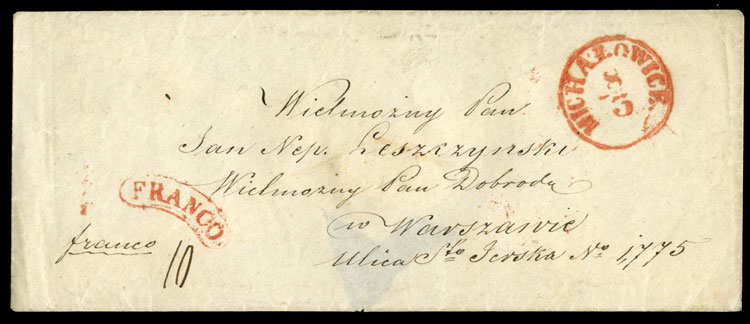 MICHAŁOWICE
Wielmożny Pan
Jan Nep. Leszczyński
Wielmożny Pan Dobrodz
w Warszawie
Ulica Sto Jerska No 1,775
FRANCO
franco
10